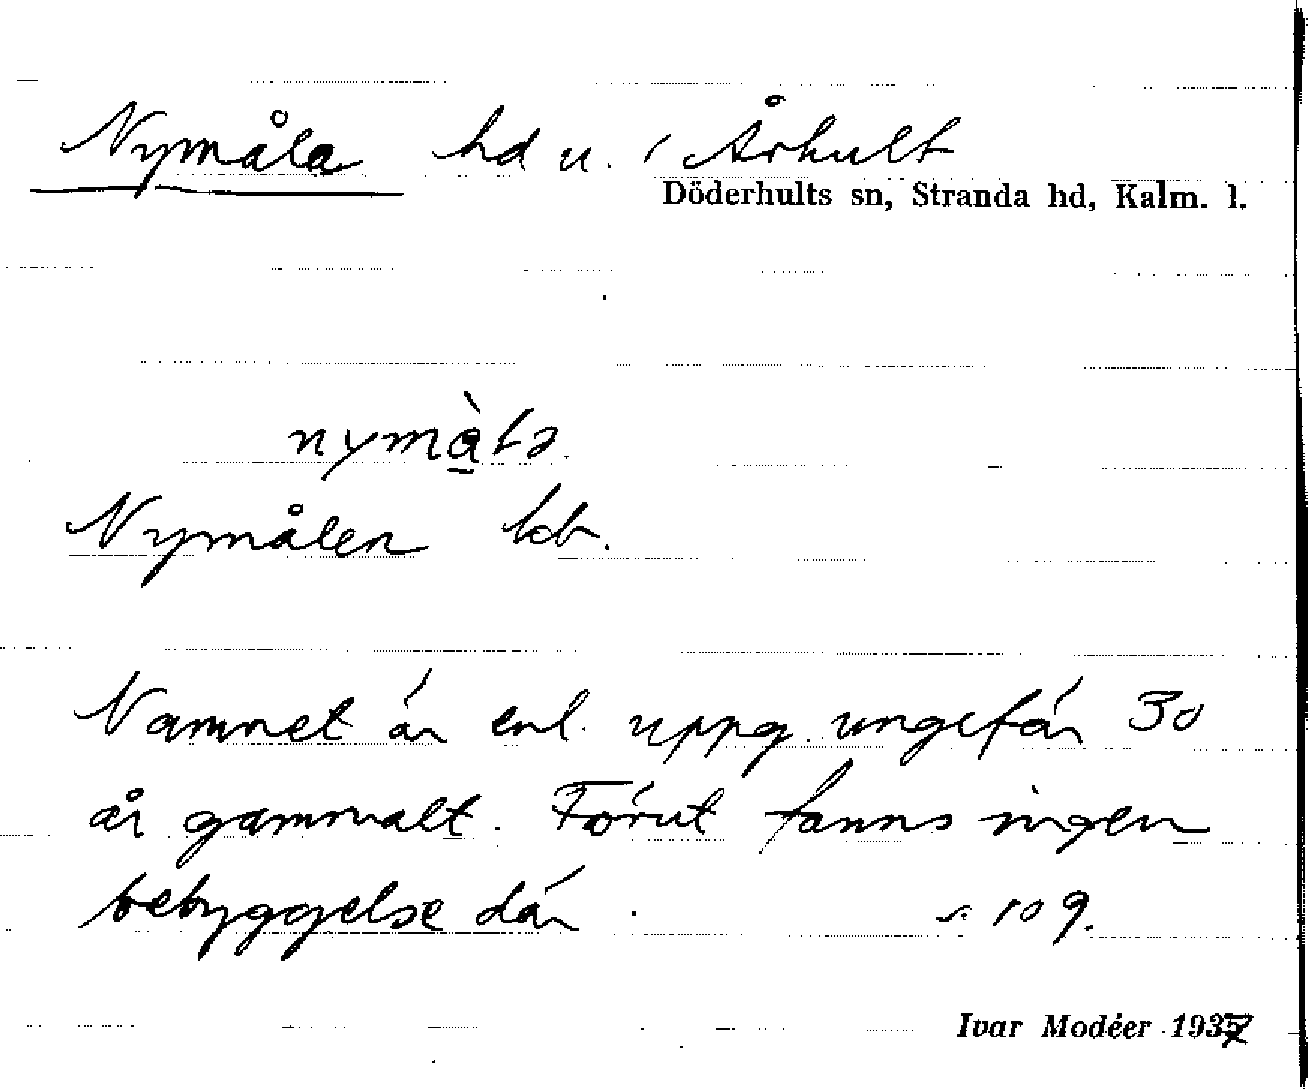 Nymåla hd u. / Århult
Döderhults sn, Stranda hd, Kalm. l.
Nymålen kb.
Namnet är enl. uppg. ungefär 30
år gammalt. Förut fanns ingen
bebyggelse där. s. 109.
Ivar Modéer 1937